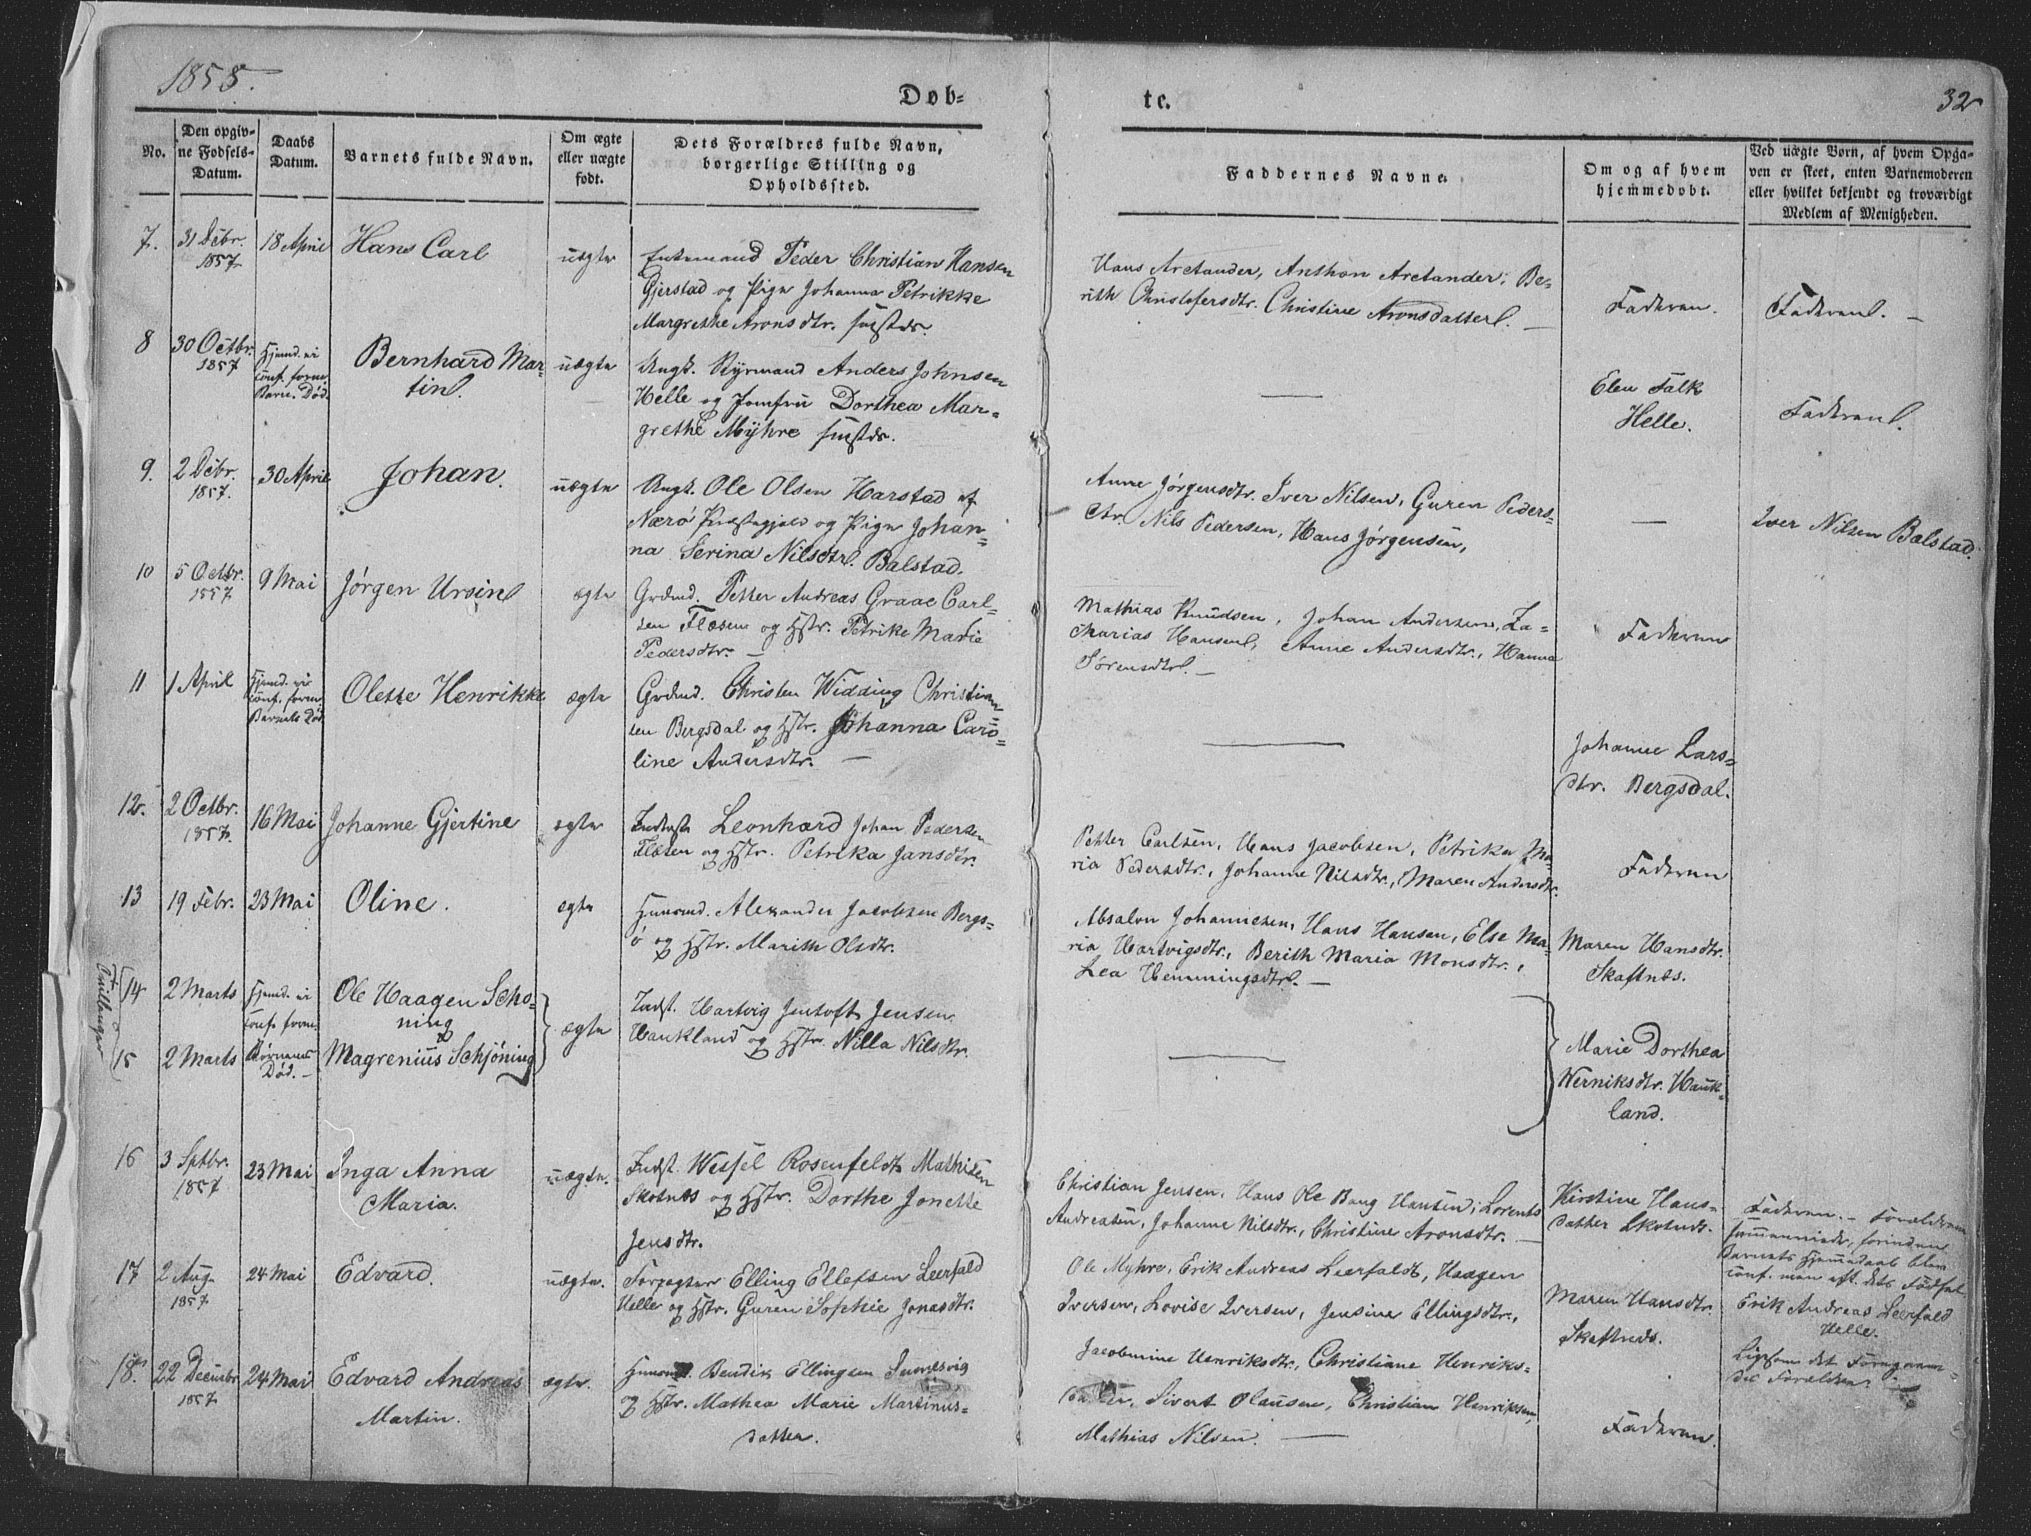 1858.
Døb-
te.
32
No.
Den opgiv-
ne Fødsels-
Datum.
Daabs
Datum.
Barnets fulde Navn.
Om ægte
eller uægte
født.
Dets Forældres fulde Navn,
borgerlige Stilling og
Opholdssted.
Faddernes Navne.
Om og af hvem
hjemmedøbt.
Ved uægte Børn, af hvem Opga-
ven er skeet, enten Barnemoderen
eller hvilket bekjendt og troværdigt
Medlem af Menigheden.
7. 31 Dcbr. 18 April Hans Carl uægte Enkemand Peder Christian Hansen
1857
Gjerstad og Pige Johanna Petrikke
Margrethe Aronsdtr. sstds.
Hans Arctander, Anthon Arctander, Be-
rith Christofersdtr. Christine Aronsdatter. —
Faderen.
Faderen. —
8 30 Octbr. Hjemd. ei Bernhard Mar- uægte Ungk. Styrmand Anders Johnsen
1857
conf. form.
Barn. Død.
tin.
Helle og Jomfru Dorthea Mar-
grethe Myhre sstds.
—
Elen Falk
Helle.
Faderen.
9. 2 Dcbr. 30 April Johan. uægte Ungk. Ole Olsen Harstad af
1857.
Nærø Præstegjeld og Pige Johan-
na Serina Nilsdtr. Balstad.
Anne Jørgensdtr. Iver Nilsen, Guren Peders-
dtr. Nils Pedersen, Hans Jørgensen,
—
Iver Nilsen Balstad.
10 5 Octbr. 9 Mai Jørgen Ursin ægte Grdmd. Petter Andreas Graae Carl-
1857
sen Flæsen og Hstr. Petrike Marie
Pedersdtr. —
Mathias Knudsen, Johan Andersen, Za-
charias Hansen, Anne Andersdtr., Hanna
Sørensdtr. —
Faderen
11 1 April Hjemd. ei Olette Henrikke ægte Grdmd. Christen Widding Christian-
conf. form.
Barnets Død.
sen Bergsdal og Hstr. Johanna Caro-
line Andersdtr. —
—
Johanne Lars-
dtr. Bergsdal.
12. 2 Octbr. 16 Mai Johanne Gjertine ægte Indtaste Leonhard Johan Pedersen
1857.
Flæsen og Hstr. Petrika Jansdtr.
Petter Carlsen, Hans Jacobsen, Petrika Ma-
ria Pedersdtr., Johanne Nilsdtr., Maren Andersdtr.
Faderen
13 19 Febr. 23 Mai Oline. ægte Huusmd. Alexander Jacobsen Bergs-
ø og Hstr. Marith Olsdtr.
Absalon Johannesen, Hans Hansen, Else Ma-
ria Hartvigsdtr., Berith Maria Monsdtr.,
Lea Hemmingsdtr. —
Maren Hansdtr.
Skaftnes.
Tvillinger
14 2 Marts Hjemd. ei Ole Haagen Schø- ægte Indst. Hartvig Jentoft Jensen
conf. form.
ning
Haukland og Hstr. Nilla Nilsdtr.
15 2 Marts Børnenes Magrenius Schjøning
Død. —
—
Marie Dorthea
Werniksdtr. Hauk-
land.
16 3 Sptbr. 23 Mai Inga Anna uægte. Indst. Wessel Rosenfeldt Mathisen
1857
Maria.
Skotnes og Hstr. Dorthe Jonette
Jensdtr.
Christian Jensen, Hans Ole Bang Hansen, Lorents
Andreasen, Johanne Nilsdtr., Christine Aronsdtr. —
Kirstine Hans-
datter Skotnes.
Faderen. — Forældrene
sammenviede, forinden
Barnets Hjemmedaab blev
conf. men eft. dets Fødsel
17 2 Aug. 24 Mai Edvard. uægte. Forpagter Elling Ellefsen Leerfald
1857
Helle og Hstr. Guren Sophie Jonasdtr.
Ole Myhre, Erik Andreas Leerfaldt, Haagen
Iversen, Lovise Iversen, Jensine Ellingsdtr.,
Maren Hansdtr.
Skaftnes.
Erik Andreas Leerfald
Helle.
Ligesom det Foregaaen-
de Forældrene
18. 22 December 24 Mai Edvard Andreas ægte. Huusmd. Bendix Ellingsen Sumesvig
1857
Martin.
og Hstr. Mathea Marie Martinus-
datter.
Jacobmine Henriksdtr., Christiane Henriks-
datter, Sivert Olausen, Christian Henriksen,
Mathias Nilsen. —
Faderen.